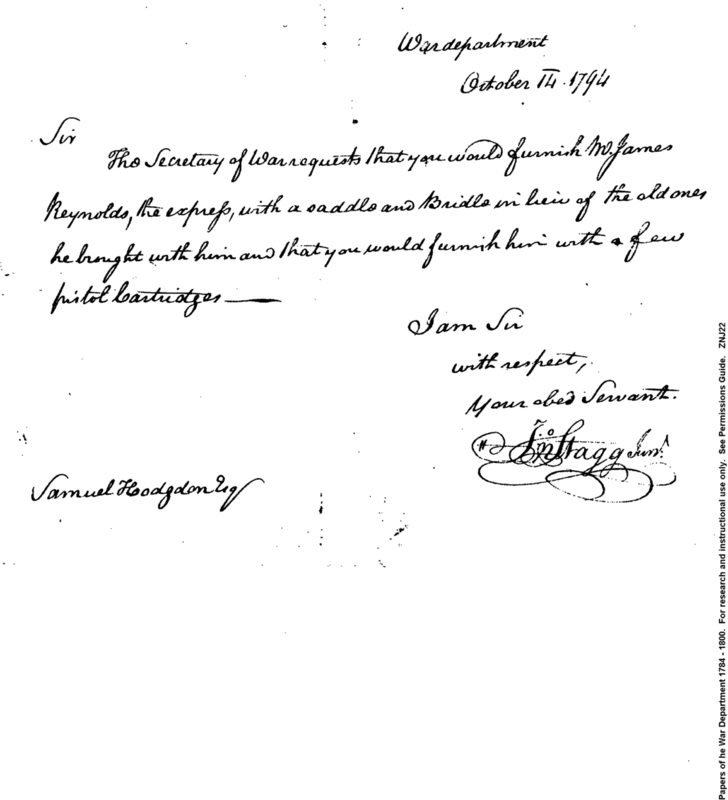 War department
October 14. 1794
Sir
The Secretary of War requests that you would furnish Mr. James
Reynolds, the express, with a saddle and Bridle in lieu of the old ones
he brought with him and that you would furnish him with a few
pistol Cartridges —
I am Sir
with respect,
Your obed Servant.
Jno Stagg Junr
Samuel Hodgdon Esq
Papers of he War Department 1784 - 1800. For research and instructional use only. See Permissions Guide. ZNJ22